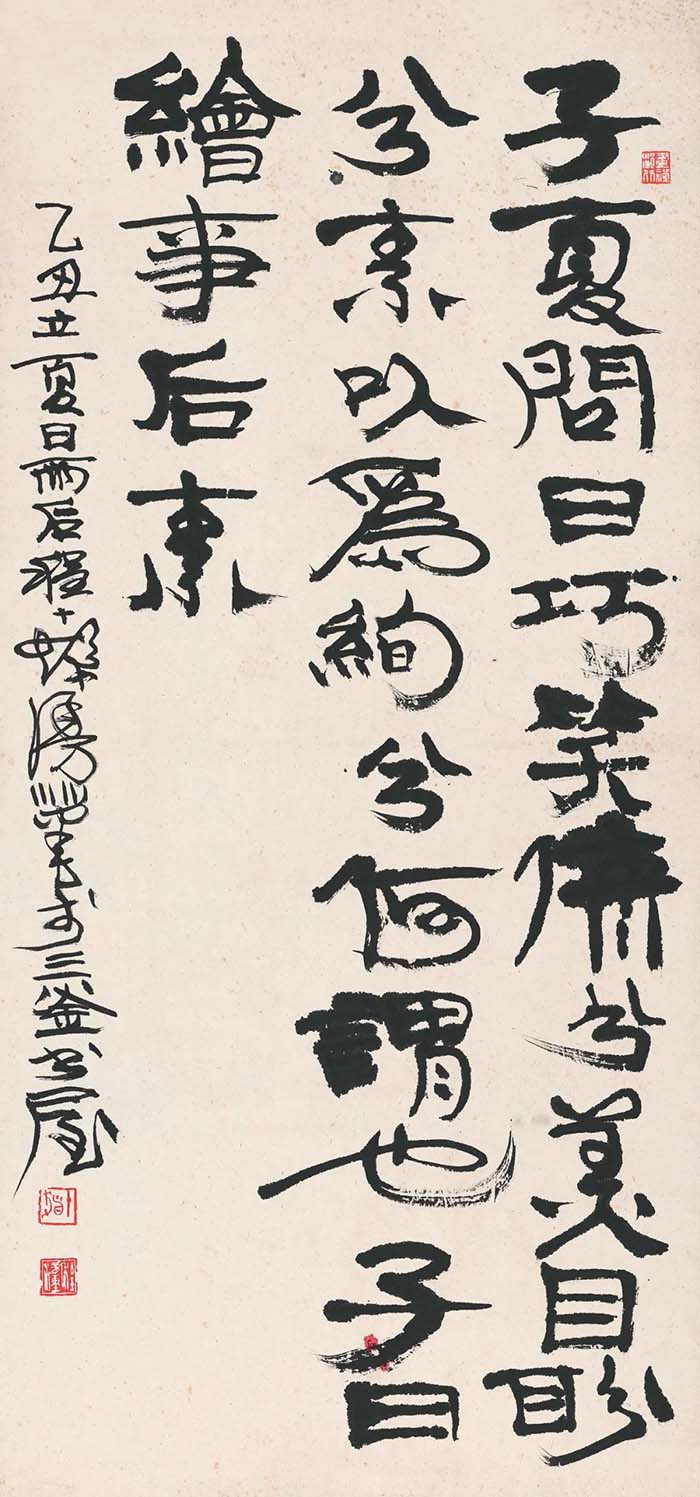 子夏問曰巧笑倩兮美目盼
兮素以爲絢兮何謂也子曰
繪事后素
乙丑立夏日雨后程十髮漫筆於三釜書屋